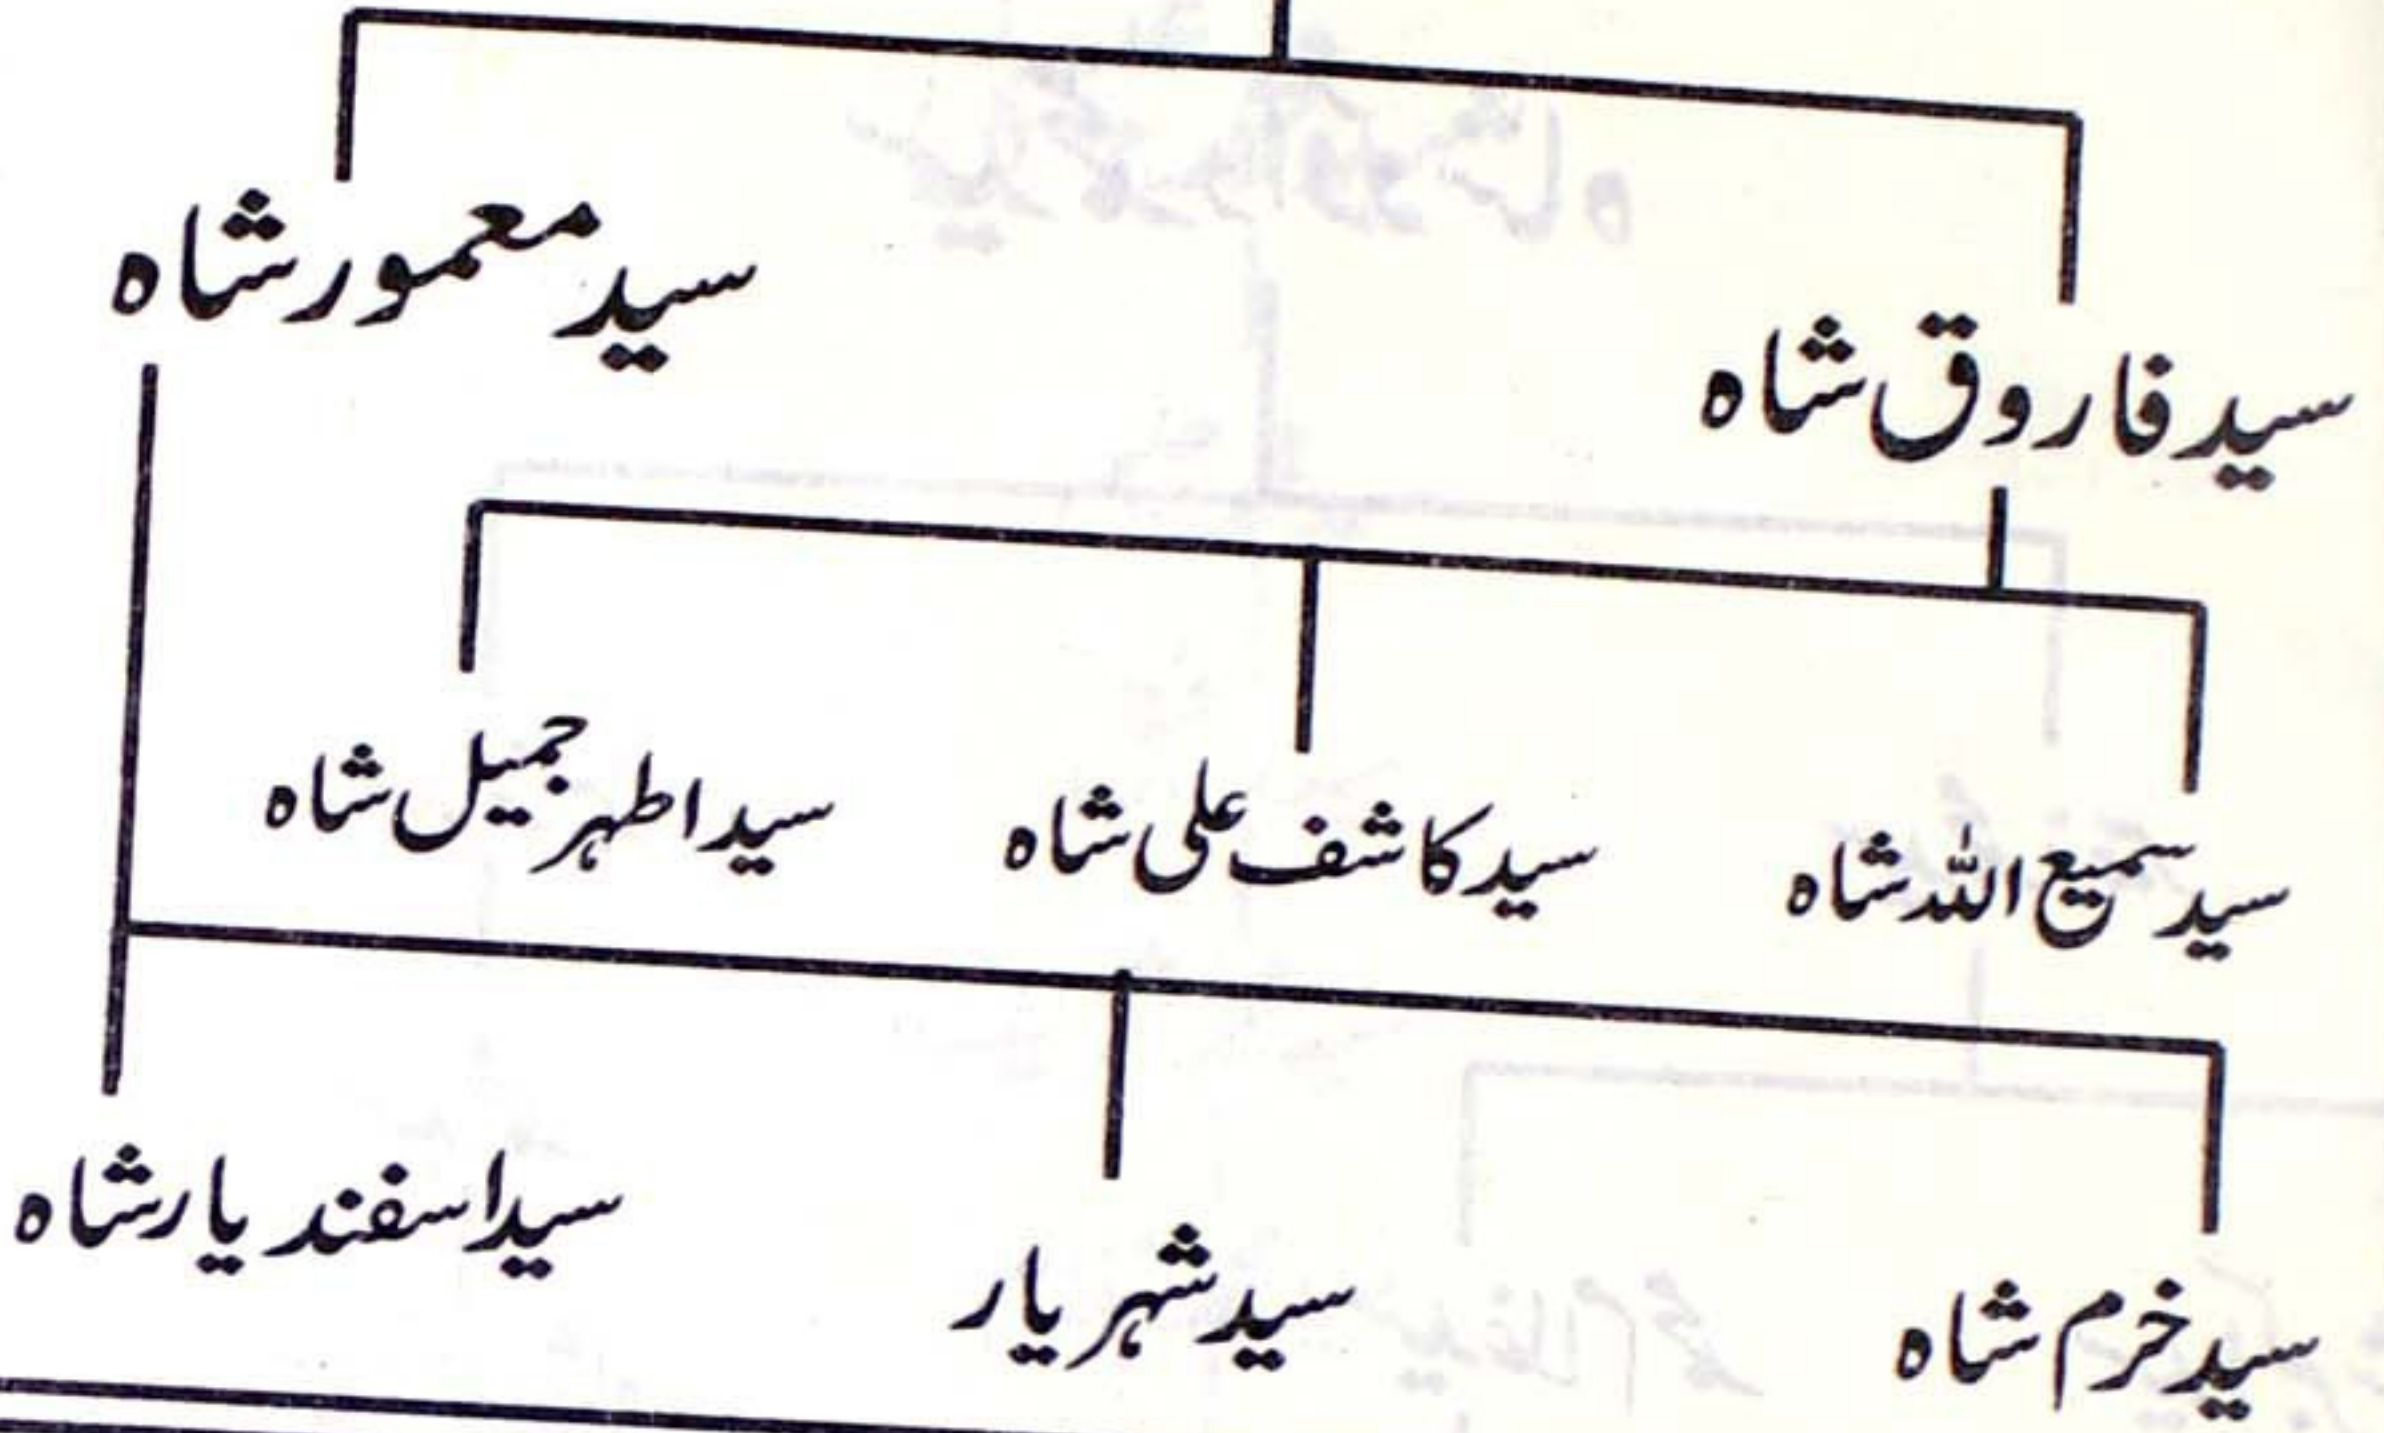 سید فاروق شاہ سید معمور شاہ
سید سمیع اللہ شاہ سید کاشف علی شاہ سید اطہر جمیل شاہ
سید خرم شاہ سید شہریار سید اسفند یار شاہ